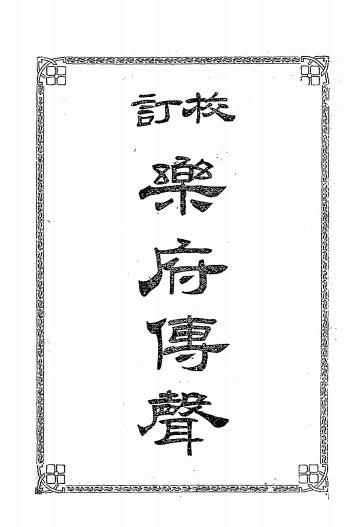 校訂
樂府傳聲